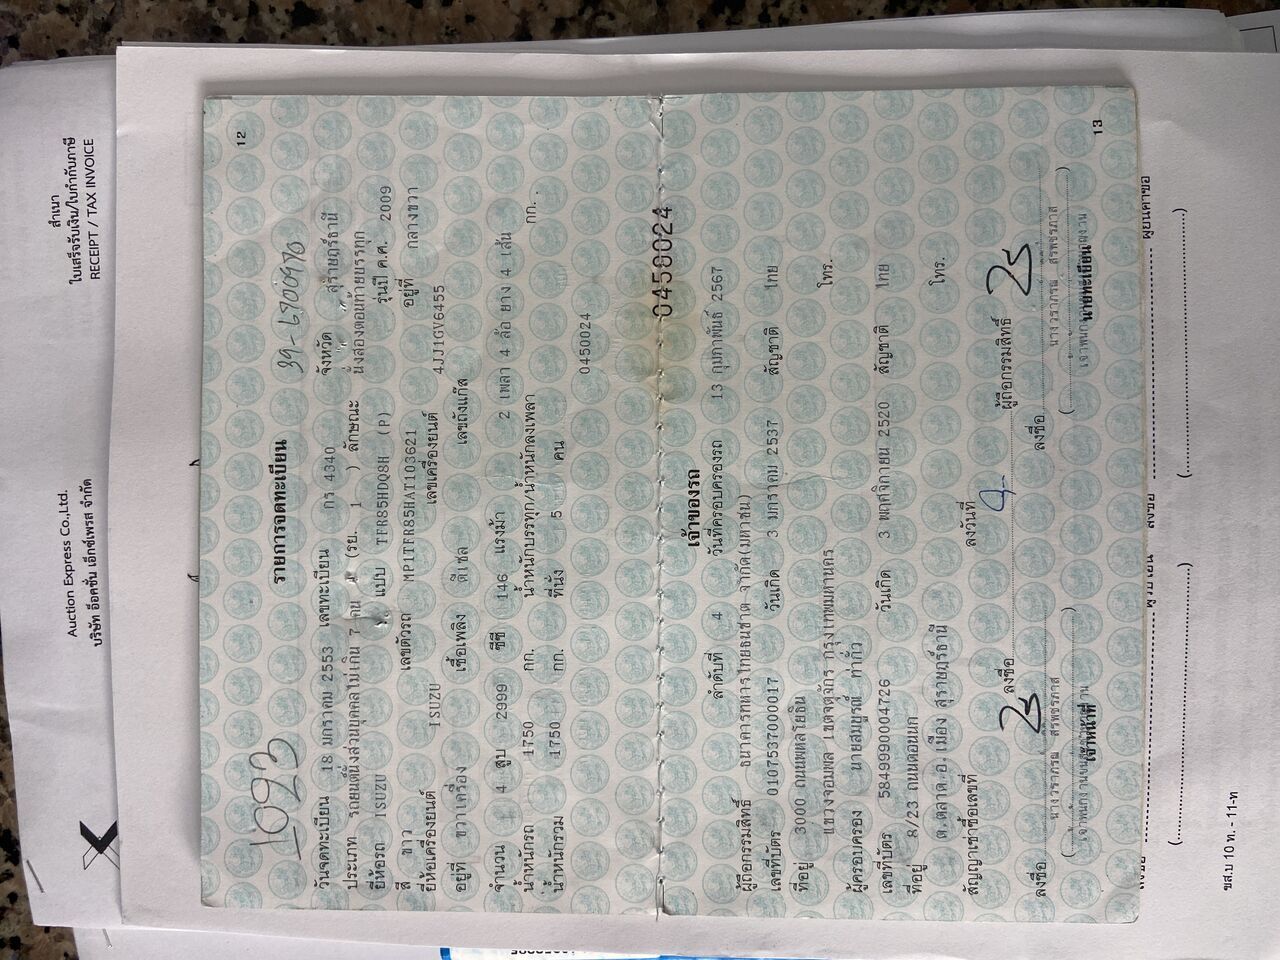 สำเนา
ใบเสร็จรับเงิน/ใบกำกับภาษี
RECEIPT / TAX INVOICE
Auction Express Co.,Ltd.
บริษัท อ๊อคชั่น เอ็กซ์เพรส จำกัด
12
1093
รายการจดทะเบียน
39-6700970
วันจดทะเบียน 18 มกราคม 2553 เลขทะเบียน กร 4340 จังหวัด สุราษฎร์ธานี
ประเภท รถยนต์นั่งส่วนบุคคลไม่เกิน 7 คน (รย. 1 ) ลักษณะ นั่งสองตอนท้ายบรรทุก
ยี่ห้อรถ ISUZU แบบ TFR85HDQ8H (P) รุ่นปี ค.ศ. 2009
สี ขาว เลขตัวรถ MP1TFR85HAT103621 อยู่ที่ กลางขวา
ยี่ห้อเครื่องยนต์ ISUZU เลขเครื่องยนต์ 4JJ1GV6455
อยู่ที่ ขวาเครื่อง เชื้อเพลิง ดีเซล เลขถังแก๊ส
จำนวน 4 สูบ 2999 ซีซี 146 แรงม้า 2 เพลา 4 ล้อ ยาง 4 เส้น
น้ำหนักรถ 1750 กก. น้ำหนักบรรทุก/น้ำหนักลงเพลา กก.
น้ำหนักรวม 1750 กก. ที่นั่ง 5 คน
0450024
0450024
เจ้าของรถ
ลำดับที่ 4 วันที่ครอบครองรถ 13 กุมภาพันธ์ 2567
ผู้ถือกรรมสิทธิ์ ธนาคารทหารไทยธนชาต จำกัด(มหาชน)
เลขที่บัตร 0107537000017 วันเกิด 3 มกราคม 2537 สัญชาติ ไทย
ที่อยู่ 3000 ถนนพหลโยธิน
แขวงจอมพล เขตจตุจักร กรุงเทพมหานคร โทร.
ผู้ครอบครอง นายสมบูรณ์ ท่าก๋ว
เลขที่บัตร 5849990004726 วันเกิด 3 พฤศจิกายน 2520 สัญชาติ ไทย
ที่อยู่ 8/23 ถนนดอนนก
ต.ตลาด อ.เมือง สุราษฎร์ธานี โทร.
สัญญาเช่าซื้อเลขที่ ลงวันที่
ลงชื่อ ผู้ถือกรรมสิทธิ์
ลงชื่อ ลงชื่อ
นางวราภรณ์ สรพชรภาส นางวราภรณ์ สรพชรภาส
( ) ( )
เจ้าหน้าที่ นายทะเบียน
13
ลงชื่อ ผู้ยื่นคำขอ
( ) ( )
ขส.บ 10 ท. - 11-ท